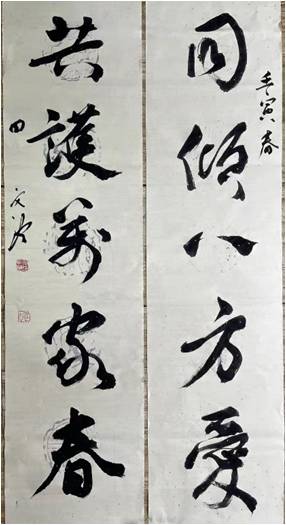 壬寅春
同傾八方愛
共護萬家春
田